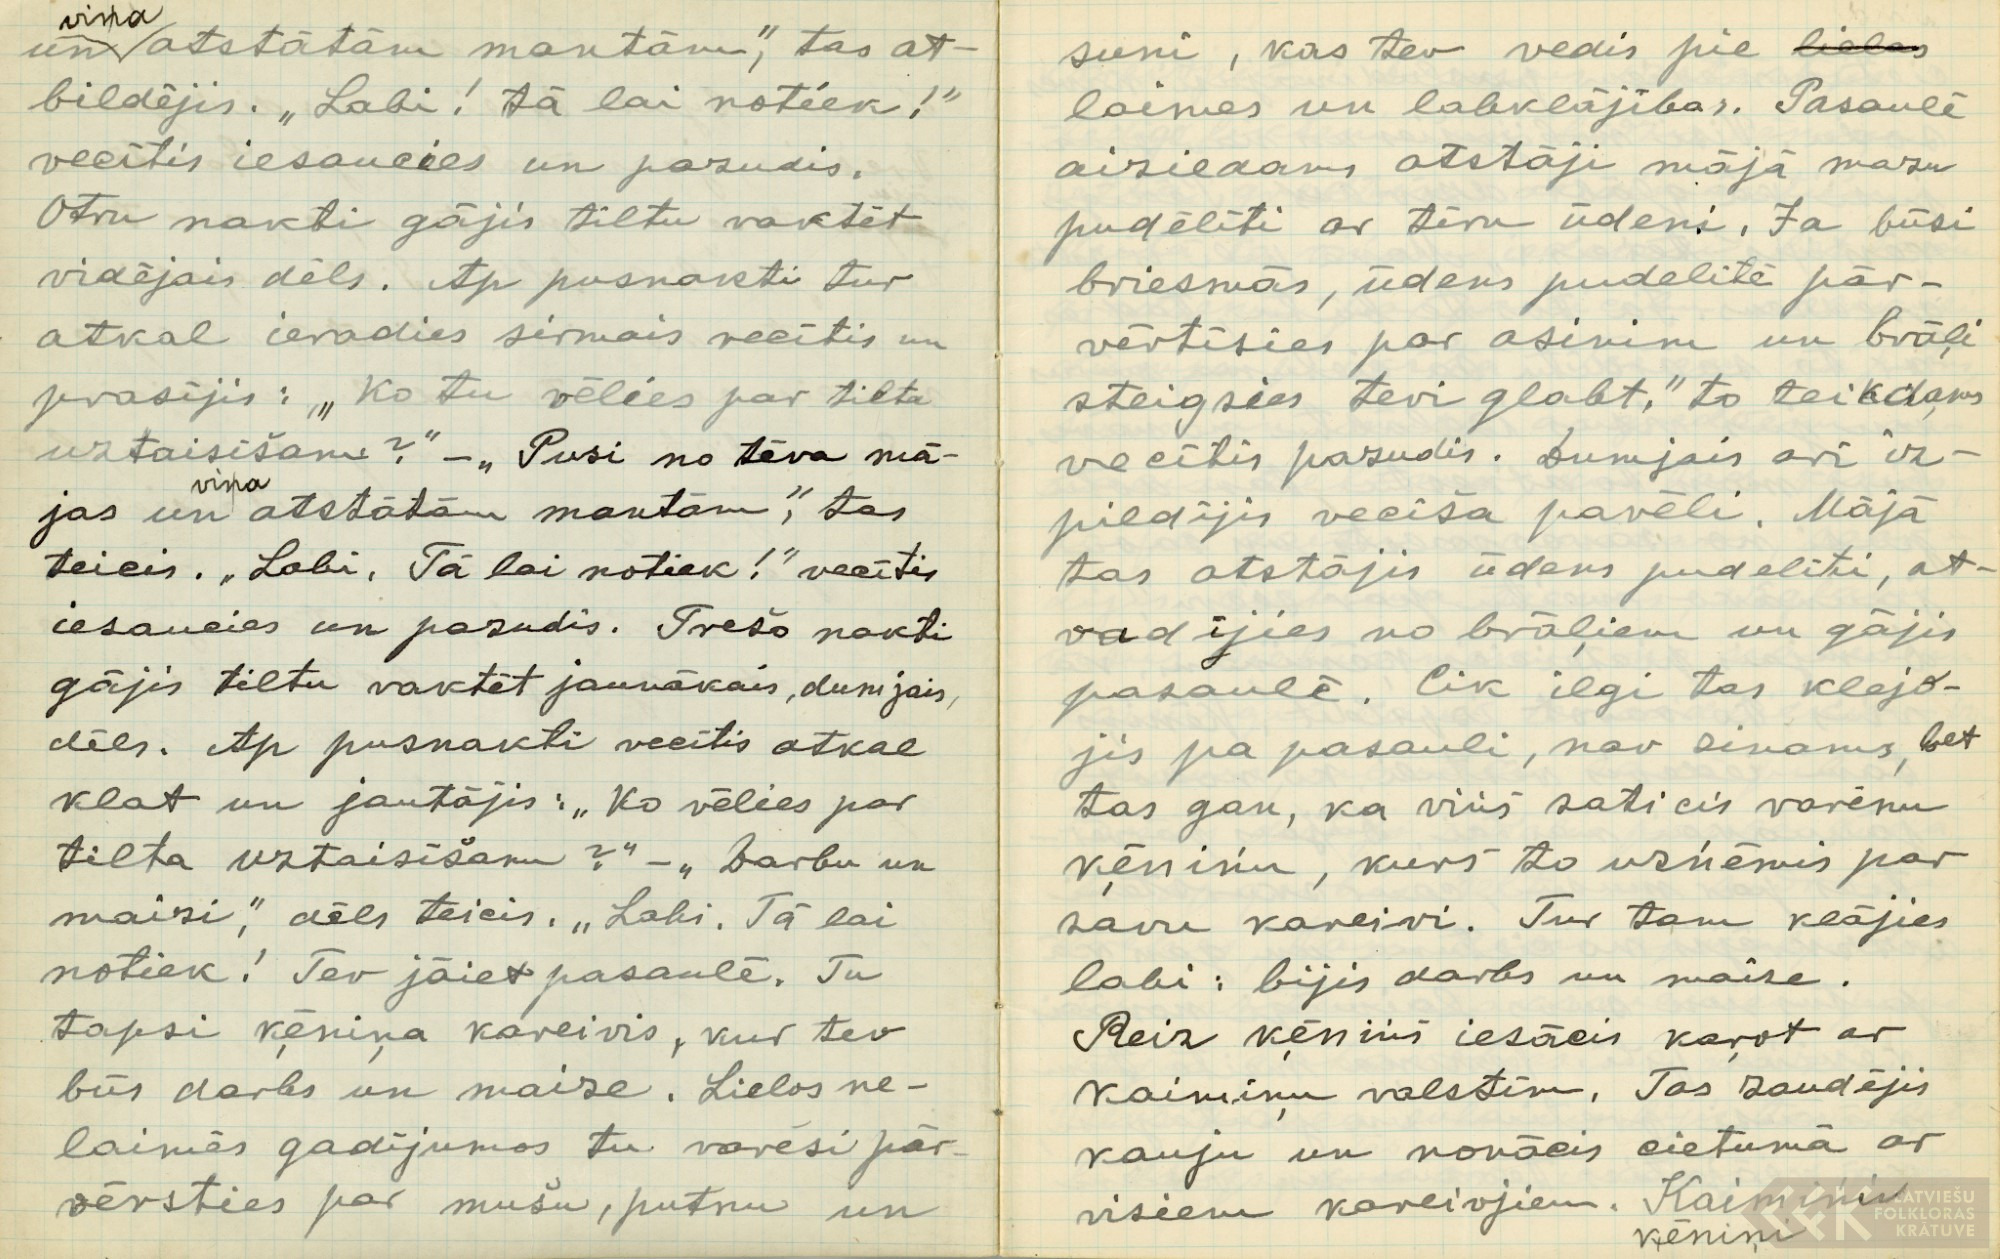 viņa
un atstātām mantām", tas at-
bildējis. „Labi! tā lai notiek!"
vecītis iesaucies un pazudis.
Otru nakti gājis tiltu vaktēt
vidējais dēls. Ap pusnakti tur
atkal ieradies sirmais vecītis un
prasījis: „Ko tu vēlies par tilta
uztaisīšanu?" – „Pusi no tēva mā-
viņa
jas un atstātām mantām", tas
teicis. „Labi. Tā lai notiek!" vecītis
iesaucies un pazudis. Trešo nakti
gājis tiltu vaktēt jaunākais, dumjais,
dēls. Ap pusnakti vecītis atkal
klāt un jautājis: „Ko vēlies par
tilta uztaisīšanu?" – „Darbu un
maizi", dēls teicis. „Labi. Tā lai
notiek! Tev jāiet pasaulē. Tu
tapsi ķēniņa kareivis, kur tev
būs darbs un maize. Lielos ne-
laimēs gadījumos tu varēsi pār-
vērsties par mušu, putnu un
suni, kas tev vedīs pie lielas
laimes un labklājības. Pasaulē
aiziedams atstāji mājā mazu
pudēlīti ar tīru ūdeni. Ja būsi
briesmās, ūdens pudelītē pār-
vērtīsies par asinīm un brāļi
steigsies tevi glābt." to teikdams
vecītis pazudis. Dumjais arī iz-
pildījis vecīša pavēli. Mājā
tas atstājis ūdens pudelīti, at-
vadījies no brāļiem un gājis
pasaulē. Cik ilgi tas klejo-
jis pa pasauli, nav zinams, bet
tas gan, ka viņš saticis varenu
ķēniņu, kurš to uzņēmis par
savu kareivi. Tur tam klājies
labi: bijis darbs un maize.
Reiz ķēniņš iesācis kaŗot ar
kaimiņu valstīm. Tas zaudējis
kauju un nonācis cietumā ar
visiem kareivjiem. Kaimiņu
ķēniņi
LATVIEŠU
FOLKLORAS
KRĀTUVE